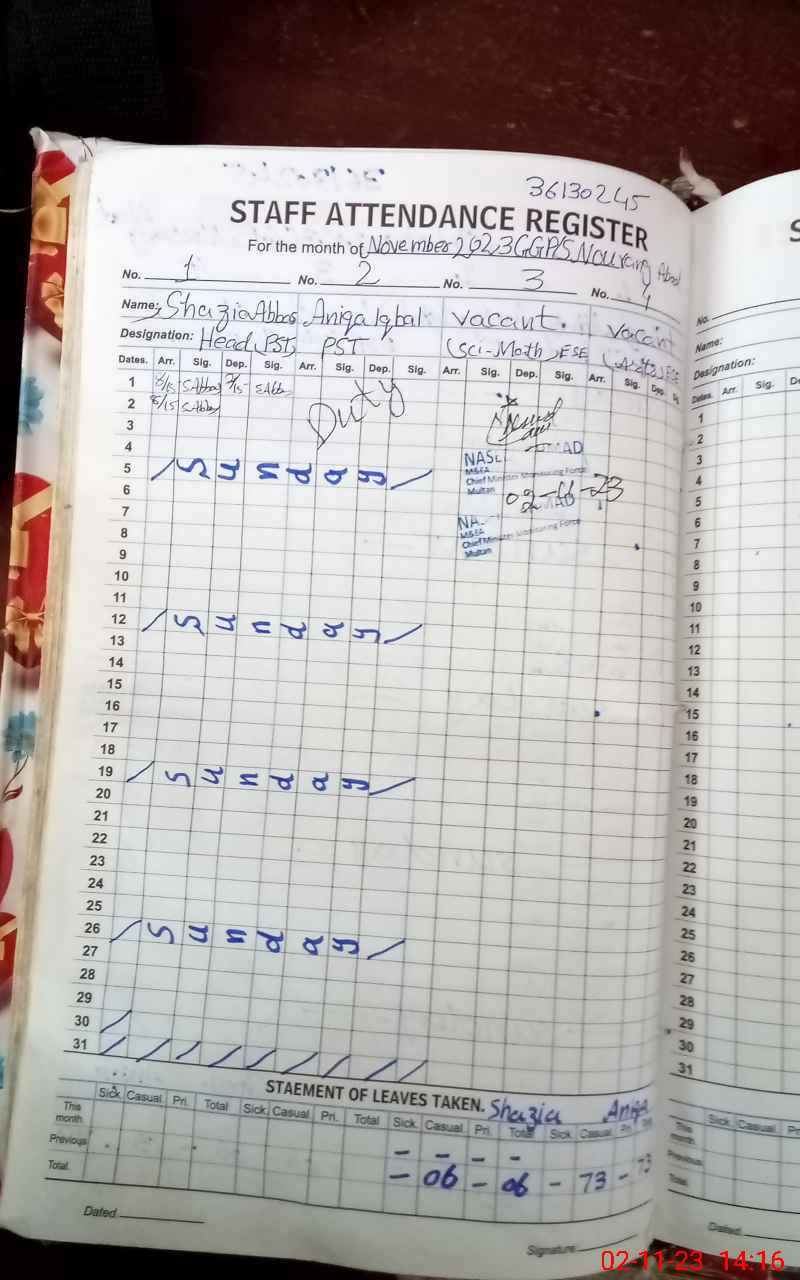 36130245
STAFF ATTENDANCE REGISTER
For the month of November 2023 GGP/S Nourang Abad
No. 1 No. 2 No. 3 No. 4
Name: Shazia Abbas Aniqa Iqbal Vacant. Vacant
Designation: Head, PST PST (Sci-Math) ESE ESE
Dates. Arr. Sig. Dep. Sig. Arr. Sig. Dep. Sig. Arr. Sig. Dep. Sig. Arr. Sig. Dep. Sig.
1 8/15 SAbbas 2/15 SAbb
2 8/15 SAbbas Duty
3
4
5 Sunday
M&EA
Chief Minister Monitoring Force
Multan
02-11-23
6
7
M&EA
Chief Minister Monitoring Force
Multan
8
9
10
11
12 Sunday
13
14
15
16
17
18
19 Sunday
20
21
22
23
24
25
26 Sunday
27
28
29
30
31
STAEMENT OF LEAVES TAKEN. Shazia Aniqa
Sick. Casual. Pri. Total Sick. Casual. Pri. Total Sick. Casual Pri. Total Sick. Casual Pri.
This month
Previous - - - -
Total. - 06 - 06 - 73 - 73
Dated
Signature:
S
No.
Name:
Designation:
Dates. Arr. Sig.
1
2
3
4
5
6
7
8
9
10
11
12
13
14
15
16
17
18
19
20
21
22
23
24
25
26
27
28
29
30
31
Sick. Casual.
This month.
Previous
Total.
Dated
02-11-23 14:16